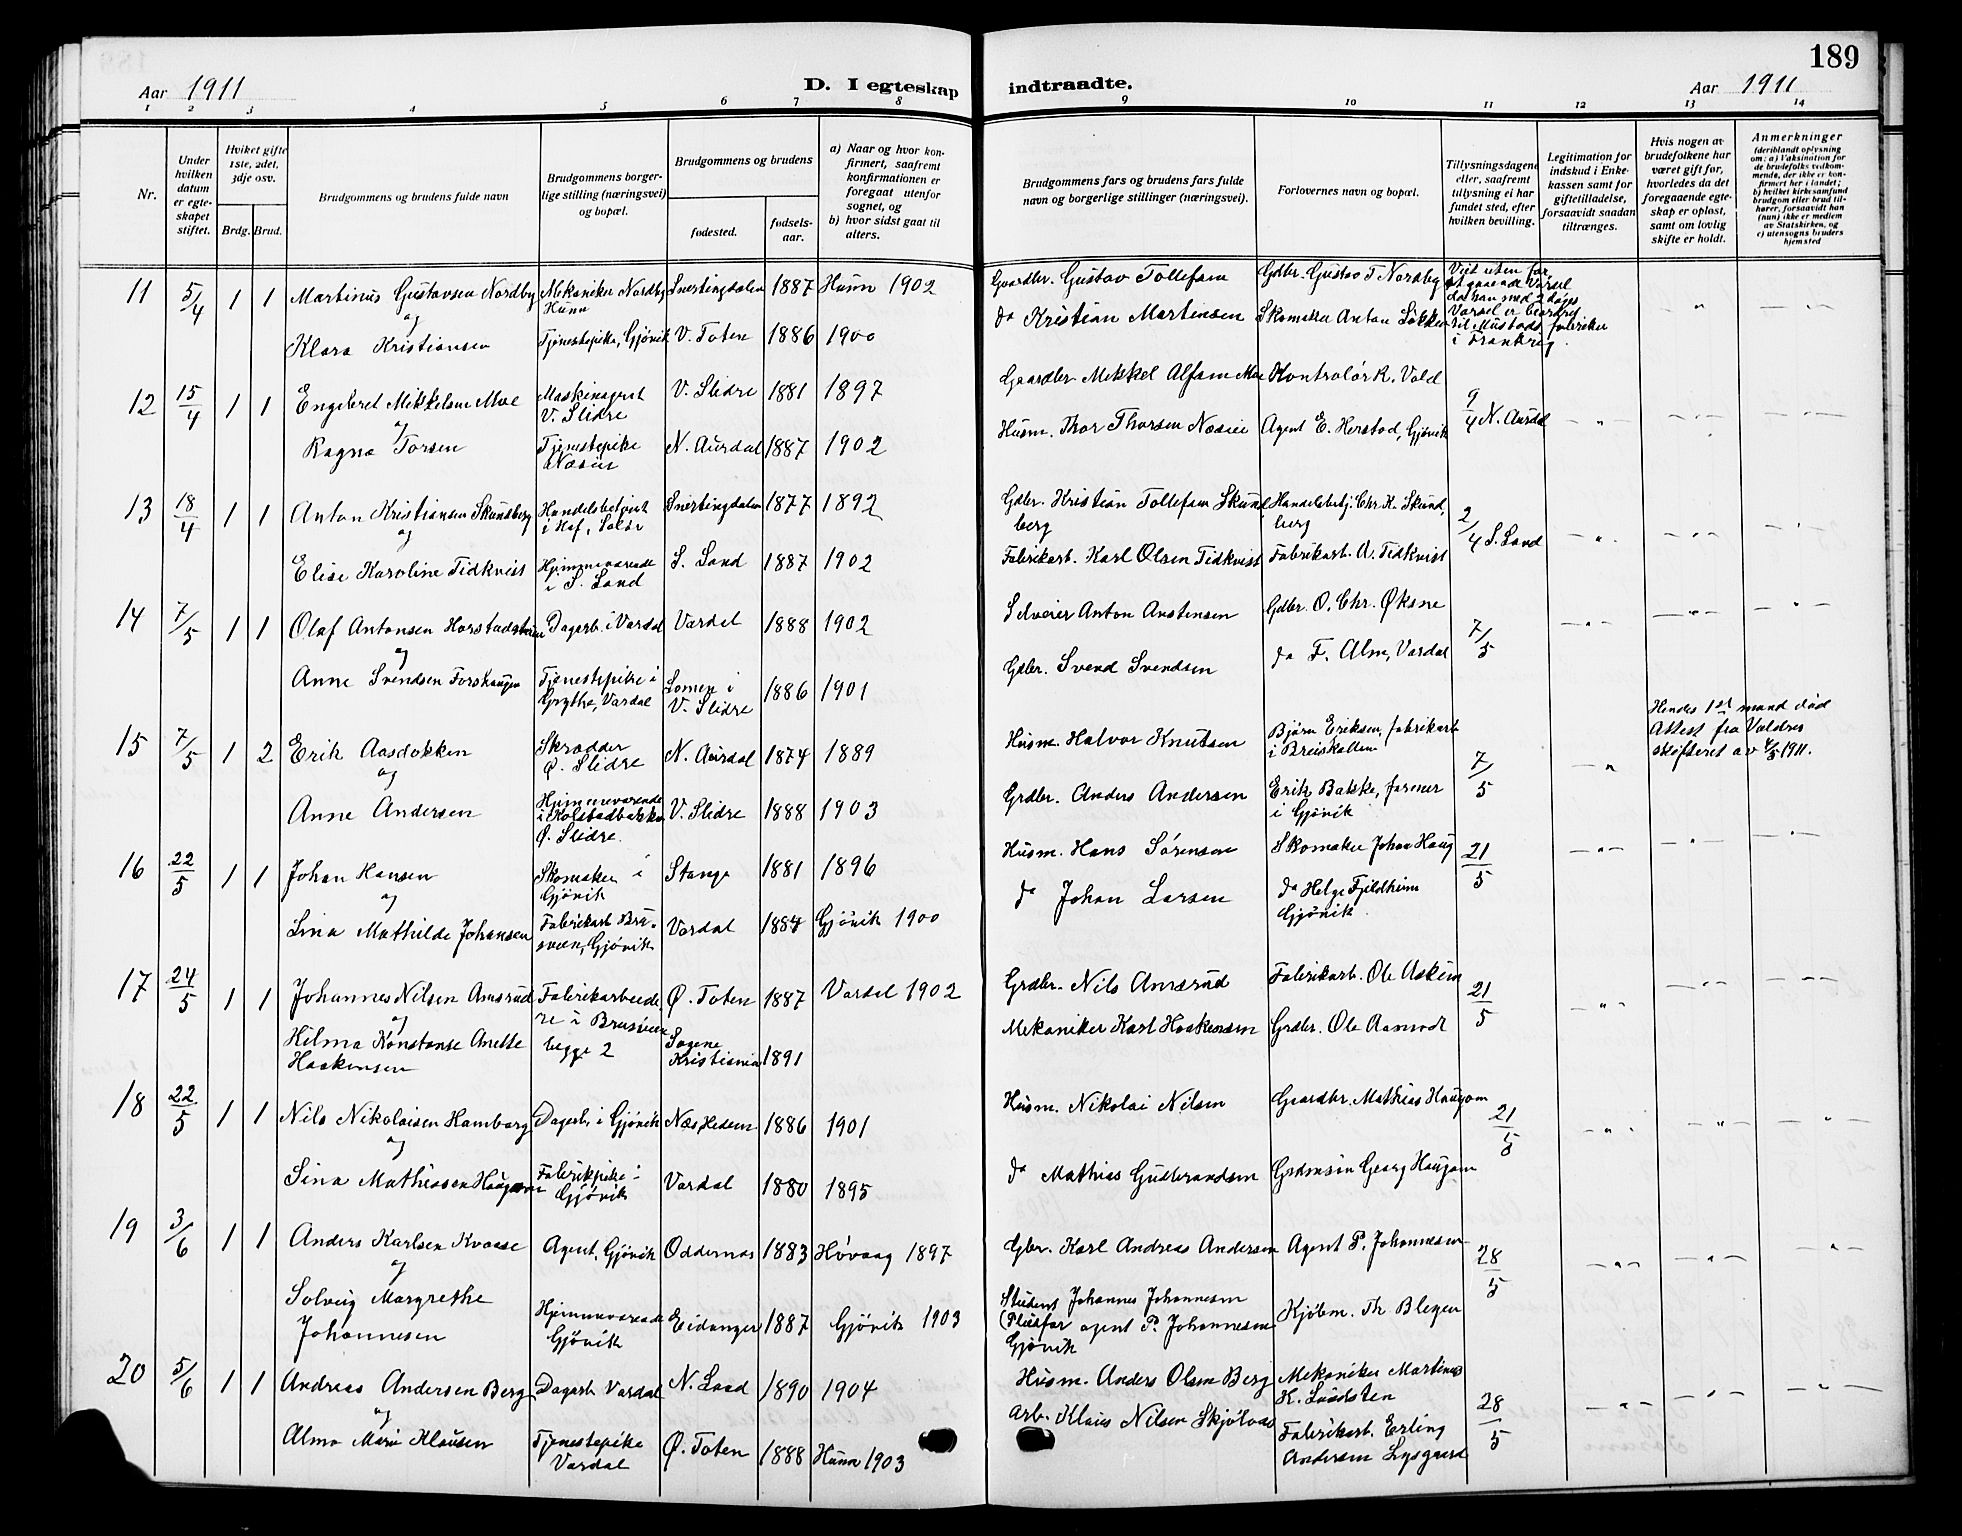 189
Aar 1911 D. I egteskap indtraadte. Aar 1911
1 2 3 4 5 6 7 8 9 10 11 12 13 14
Nr.
Under hvilken datum er egteskapet stiftet.
Hvilket gifte 1ste, 2det, 3dje osv.
Brdg. Brud.
Brudgommens og brudens fulde navn
Brudgommens borgerlige stilling (næringsvei) og bopæl.
Brudgommens og brudens
fødested.
fødselsaar.
a) Naar og hvor konfirmert, saafremt konfirmationen er foregaat utenfor sognet, og
b) hvor sidst gaat til alters.
Brudgommens fars og brudens fars fulde navn og borgerlige stillinger (næringsvei).
Forlovernes navn og bopæl.
Tillysningsdagene eller, saafremt tillysning ei har fundet sted, efter hvilken bevilling.
Legitimation for indskud i Enkekassen samt for giftetilladelse, forsaavidt saadan tiltrænges.
Hvis nogen av brudefolkene har været gift før, hvorledes da det foregaaende egteskap er opløst, samt om lovlig skifte er holdt.
Anmerkninger (deriblandt oplysning om: a) Vaksination for de brudefolks vedkommende, der ikke er konfirmert her i landet; b) hvilket kirkesamfund brudgom eller brud tilhører, forsaavidt han (hun) ikke er medlem av Statskirken, og c) utensogns bruders hjemsted
11 5/4 1 1 Martinus Gustavsen Nordby Mekaniker Nordby Hunn Snertingdalen 1887 Hunn 1902 Gaardbr. Gustav Tollefsen Gdbr. Gustav T Nordby Viet uten for
at gaaende Varsel
da han med 2 dages
Varsel er beordret
til Mustads fabrikker
i Frankrig.
og
Klara Kristiansen Tjenestepike, Gjøvik V. Toten 1886 1900 do Kristian Martinsen Skomaker Anton Løkken
12 15/4 1 1 Engebret Mikkelsen Moe Maskinagent V. Slidre V. Slidre 1881 1897 Gaardbr Mikkel Alfsen Moe Kontrolør K. Vold 9/4 N. Aurdal
og
Ragna Torsen Tjenestepike N. Aurdal 1887 1902 Husm. Thor Thorsen Næsie Agent E. Herstad, Gjøvik
13 18/4 1 1 Anton Kristiansen Skundberg Handelsbetjent i Hof, Solør Snertingdalen 1877 1892 Gdbr. Kristian Tollefsen Skundberg Handelsbetj. Chr. K. Skundberg 2/4 S. Land
og
Elise Karoline Tidkvist Hjemmeværende i S. Land S. Land 1887 1902 Fabrikarb. Karl Olsen Tidkvist Fabrikarb. A. Tidkvist
14 7/5 1 1 Olaf Antonsen Dagarb. i Vardal Vardal 1888 1902 Selveier Anton Anstensen Gdbr. O. Chr. Øksne 7/5
og
Anne Svendsen Tjenestepike i Grythe, Vardal Lomen i V. Slidre 1886 1901 Gdbr. Svend Svendsen do F. Alm, Vardal
15 7/5 1 2 Erik Aasdokken Skrædder Ø. Slidre N. Aurdal 1874 1889 Husm. Halvor Knutsen Bjørn Eriksen, fabrikarb i 7/5
Hendes 1st mand død
Attest fra Valdres
skifteret av 1911.
og
Anne Andersen Hjemmeværende i Ø. Slidre. V. Slidre 1888 1903 Grdbr. Anders Andersen Erik Bakke, farver i Gjøvik
16 22/5 1 1 Johan Hansen Skomaker i Gjøvik Stange 1881 1896 Husm. Hans Sørensen Skomaker Johan Haug 21/5
og
Lina Mathilde Johansen Fabrikarb Brusveen, Gjøvik Vardal 1884 Gjøvik 1900 do Johan Larsen do Helge Fjeldheim Gjøvik
17 24/5 1 1 Johannes Nilsen Amsrud Fabrikarbeidere i Brusveen begge 2 Ø. Toten 1887 Vardal 1902 Grdbr. Nils Amsrud Fabrikarb. Ole Askim 21/5
og
Hilma Konstanse Anette Haakensen Sagene Kristiania 1891 Mekaniker Karl Haakensen Grdbr. Ole Aamodt
18 22/5 1 1 Nils Nikolaisen Hamborg Dagarb. i Gjøvik Næs, Hedem. 1886 1901 Husm. Nikolai Nilsen Gaardbr. Mathias Haugom 21/5
og
Sina Mathiassen Haugom Fabrikpike i Gjøvik Vardal 1880 1895 do Mathias Gudbrandsen Grdmsøn Georg Haugom
19 3/6 1 1 Anders Karlsen Kvaase Agent, Gjøvik Oddernes 1883 Høvaag 1897 Gbr. Karl Andreas Andersen Agent P. Johannesen 28/5
og
Solveig Margrethe Johannesen Hjemmeværende Gjøvik Eidanger 1887 Gjøvik 1903 Student Johannes Johannesen (Pleiefar agent P. Johannesen Gjøvik Kjøbm. Th Blegen
20 5/6 1 1 Andreas Andersen Berg Dagarb Vardal N. Land 1890 1904 Husm. Anders Olsen Berg Mekaniker Martinus K. Laadsten 28/5
og
Alma Marie Klausen Tjenestepike Vardal Ø. Toten 1888 Hunn 1903 Arb. Klaus Nilsen Fabrikarb. Erling Andersen Lysgaard